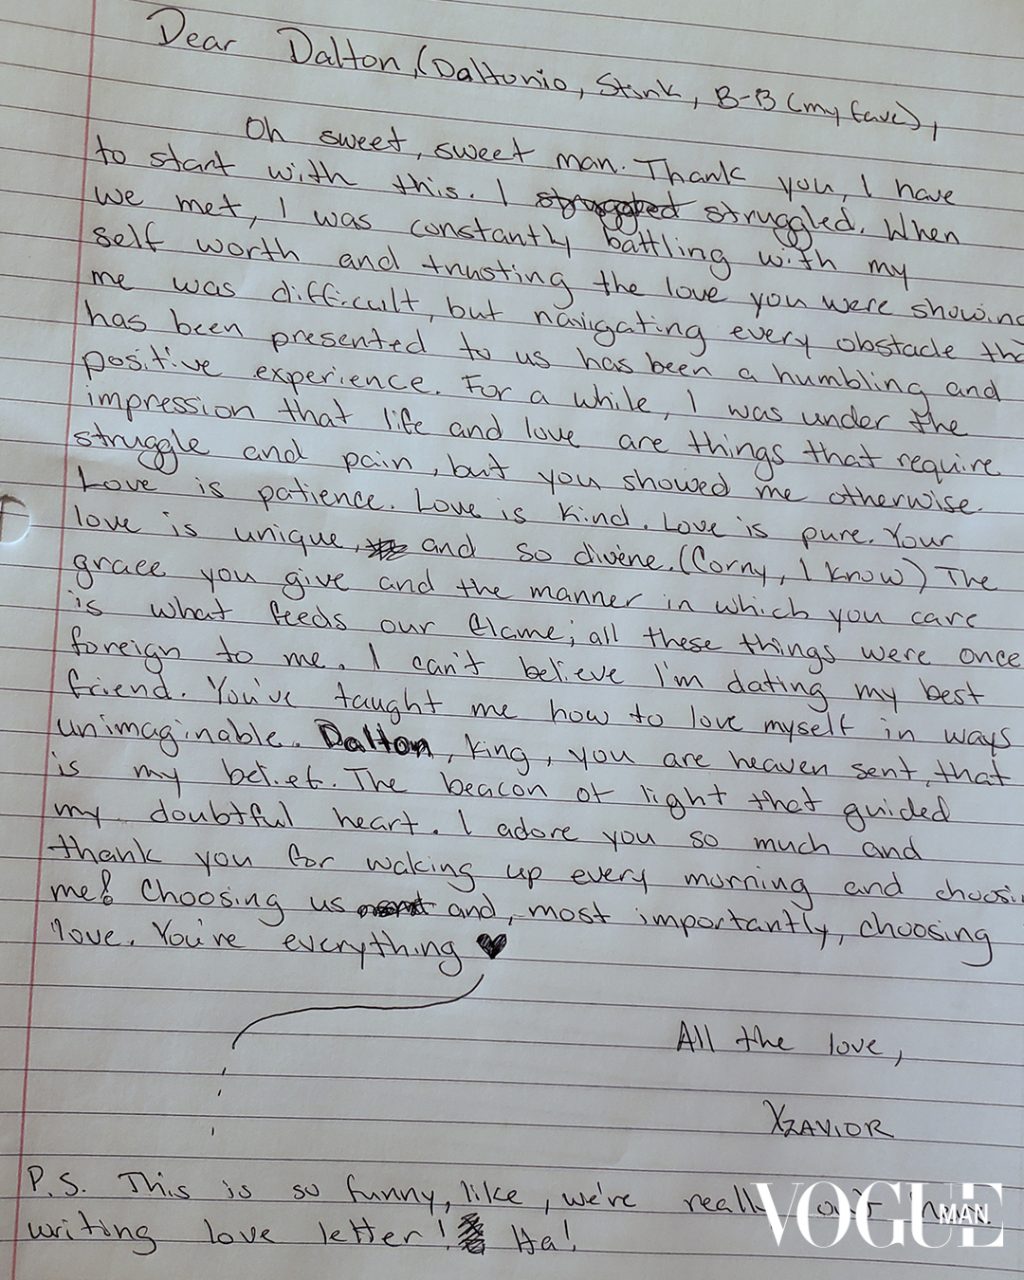 Dear Dalton, (Daltonio, Stink, B-B (my fave),
Oh sweet, sweet man. Thank you, I have
to start with this. I struggled struggled. When
we met, I was constantly battling with my
self worth and trusting the love you were showing
me was difficult, but navigating every obstacle tha
has been presented to us has been a humbling and
positive experience. For a while, I was under the
impression that life and love are things that require
struggle and pain, but you showed me otherwise.
Love is patience. Love is kind. Love is pure. Your
love is unique, and so divine. (Corny, I know) The
grace you give and the manner in which you care
is what feeds our flame; all these things were once
foreign to me. I can't believe I'm dating my best
friend. You've taught me how to love myself in ways
unimaginable. Dalton, King, you are heaven sent, that
is my belief. The beacon of light that guided
my doubtful heart. I adore you so much and
thank you for waking up every morning and choosin
me! Choosing us and, most importantly, choosing
love. You're everything ♥
All the love,
XZAVIOR
P.S. This is so funny, like, we're really out
writing love letter! Ha!
VOGUE
MAN